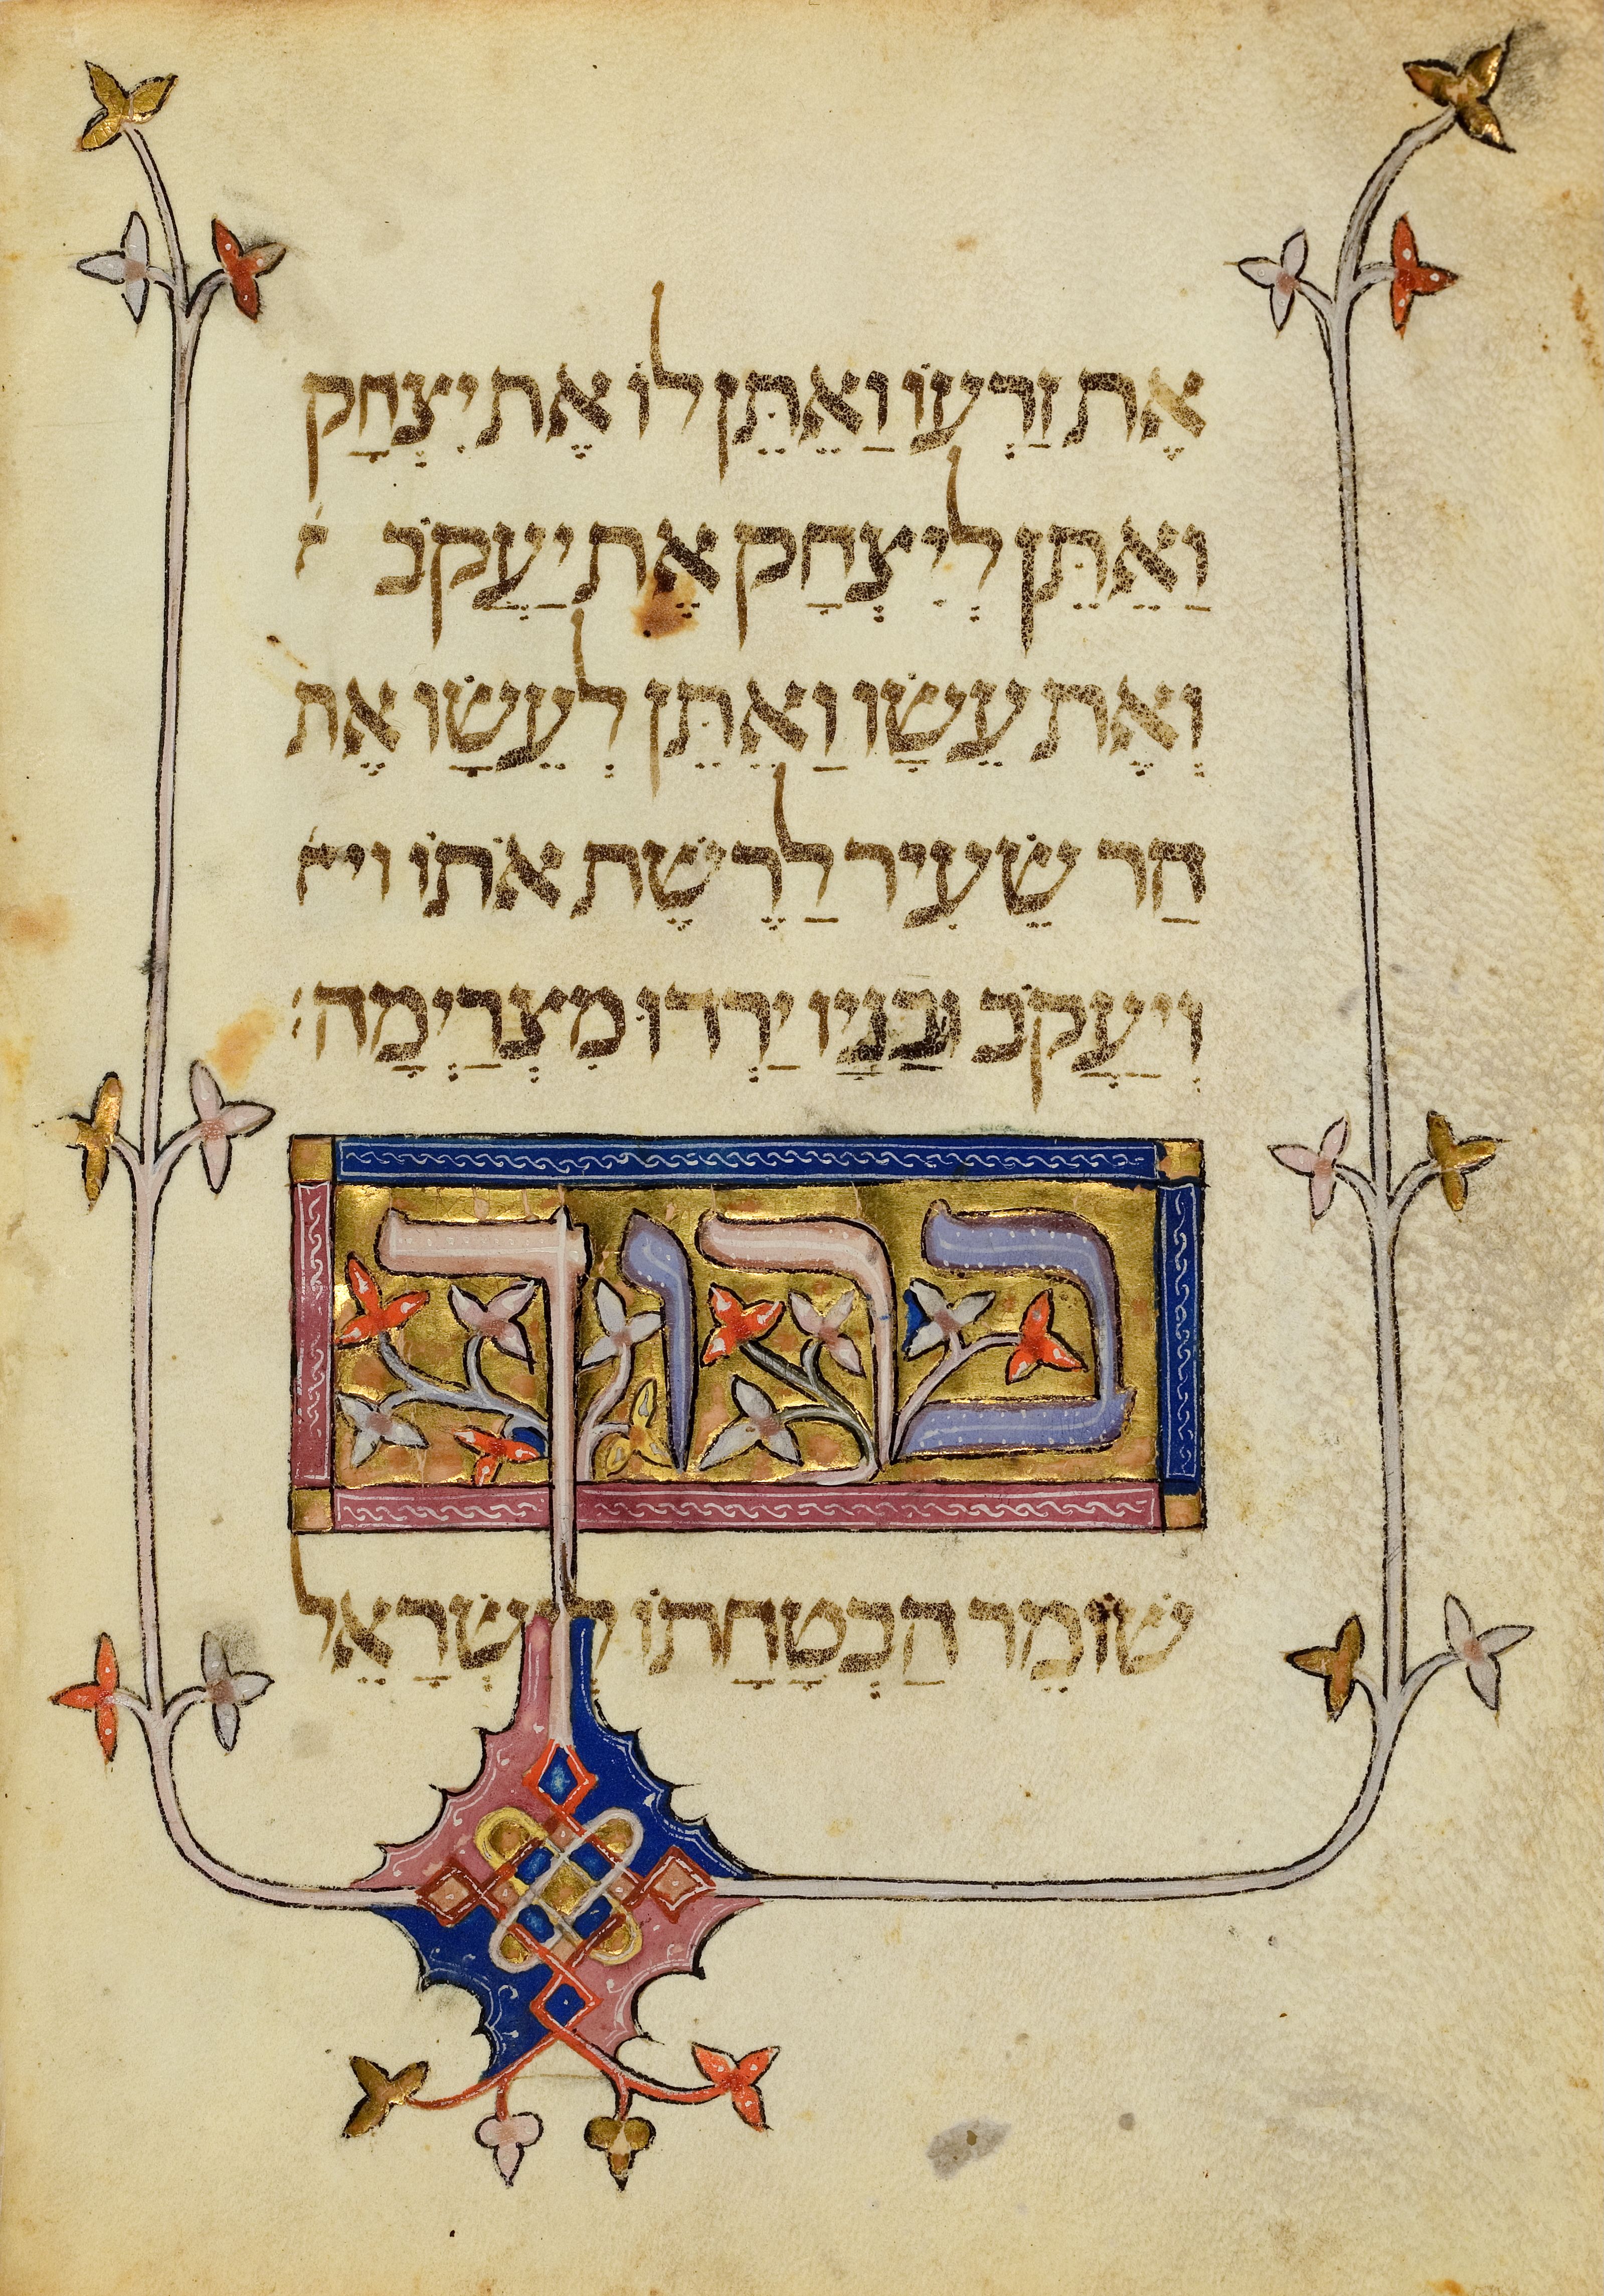 אֶת זַרְעוֹ וַאֵתֵּן לוֹ אֶת יִצְחָק
וַאֵתֵּן לְיִצְחָק אֶת יַעֲקֹב
וְאֶת עֵשָׂו וַאֵתֵּן לְעֵשָׂו אֶת
הַר שֵׂעִיר לַרֶשֶׁת אֹתוֹ וי
וְיַעֲקֹב וּבָנָיו יַרְדוּ מִצְרַיְמָה׃
ברוך
שׁוֹמֵר הַבְטָחָתוֹ לְיִשְׂרָאֵל